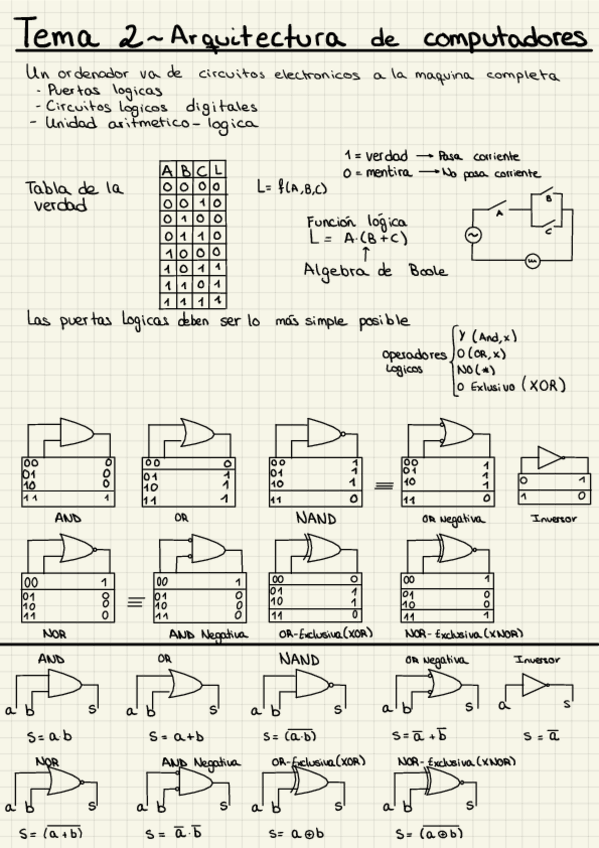 Tema 2~Arquitectura de computadores
Un ordenador va de circuitos electronicos a la maquina completa
- Puertas logicas
- Circuitos logicos digitales
- Unidad aritmetico-logica
1 = verdad → Pasa corriente
0 = mentira → No pasa corriente
Tabla de la
verdad
A B C L
0 0 0 0
0 0 1 0
0 1 0 0
0 1 1 0
1 0 0 0
1 0 1 1
1 1 0 1
1 1 1 1
L= f(A,B,C)
Función lógica
L = A·(B+C)
↑
Algebra de Boole
A
B
C
Las puertas logicas deben ser lo más simple posible
operadores
logicos
Y (And,x)
O (OR,x)
NO (*)
O Exlusivo (XOR)
00 0
01 0
10 0
11 1
AND
00 0
01 1
10 1
11 1
OR
00 1
01 1
10 1
11 0
NAND
≡
00 1
01 1
10 1
11 0
OR Negativa
0 1
1 0
Inversor
00 1
01 0
10 0
11 0
NOR
≡
00 1
01 0
10 0
11 0
AND Negativa
00 0
01 1
10 1
11 0
OR-Exclusiva(XOR)
00 1
01 0
10 0
11 1
NOR-Exclusiva(XNOR)
AND OR NAND OR Negativa Inversor
a b S a b S a b S a b S a S
S= a·b S= a+b S= (a̅·̅b̅) S= a̅ + b̅ S = a̅
NOR AND Negativa OR-Exclusiva(XOR) NOR-Exclusiva(XNOR)
a b S a b S a b S a b S
S= (a̅+̅b̅) S= a̅·b̅ S= a⊕b S= (a̅⊕̅b̅)